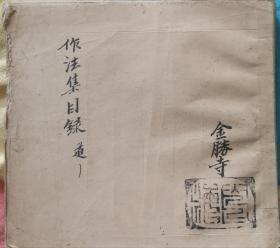 作法集目録
金勝寺